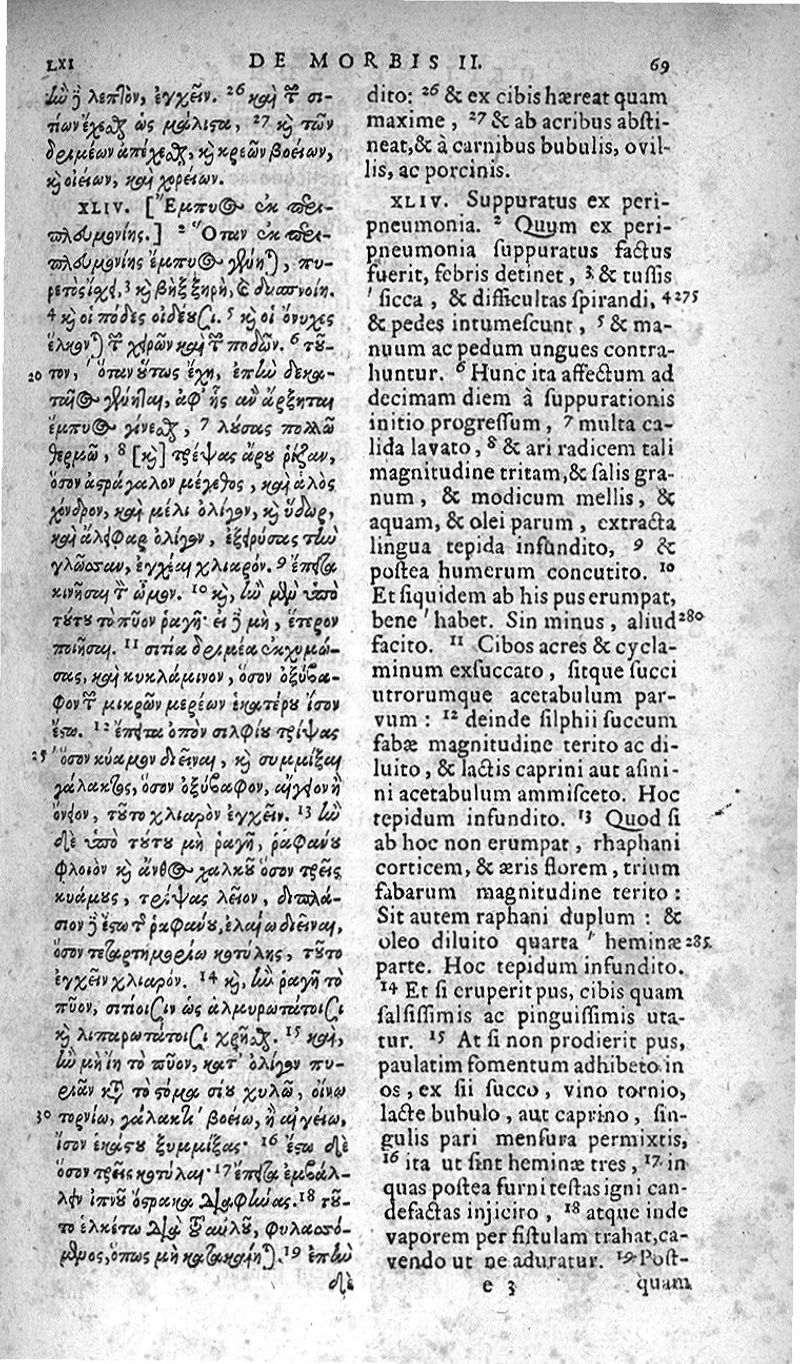 LXI DE MORBIS II. 69
ἢν δὲ λεπτὸν, ἐγχεῖν. 26 καὶ τῶν σι-
τίων ἔχεσθαι ὡς μάλιστα, 27 καὶ τῶν
δριμέων ἀπέχεσθαι, καὶ κρεῶν βοείων,
καὶ οἰείων, καὶ χοιρείων.
XLIV. [Ἔμπυος ἐκ περι-
πλευμονίης.] 2 Ὅταν ἐκ περι-
πλευμονίης ἔμπυος γένηται, πυ-
ρετὸς ἴσχει, 3 καὶ βὴξ ξηρὴ, καὶ δυσπνοίη.
4 καὶ οἱ πόδες οἰδέουσι. 5 καὶ οἱ ὄνυχες
ἕλκονται τῶν χειρῶν καὶ τῶν ποδῶν. 6 τοῦ-
20 τον, ὅταν οὕτως ἔχῃ, ἐπὴν δεκα-
ταῖος γένηται, ἀφ' ἧς ἂν ἄρξηται
ἔμπυος γίνεσθαι, 7 λούσας πολλῷ
θερμῷ, 8 [καὶ] τρίψας ἄρου ῥίζαν,
ὅσον ἀστράγαλον μέγεθος, καὶ ἁλὸς
χόνδρον, καὶ μέλι ὀλίγον, καὶ ὕδωρ,
καὶ ἄλειφαρ ὀλίγον, ἐξειρύσας τὴν
γλῶσσαν, ἐγχέαι χλιαρόν. 9 ἔπειτα
κινῆσαι τὸν ὦμον. 10 καὶ, ἢν μὲν ὑπὸ
τούτου τὸ πῦον ῥαγῇ· εἰ δὲ μὴ, ἕτερον
ποιῆσαι. 11 σιτία δριμέα ἐκχυμώ-
σας, καὶ κυκλάμινον, ὅσον ὀξύβα-
φον τῶν μικρῶν μερέων ἑκατέρου ἴσον
ἔστω. 12 ἔπειτα ὀπὸν σιλφίου τρίψας
25 ὅσον κύαμον διεῖναι, καὶ συμμίξαι
γάλακτος, ὅσον ὀξύβαφον, αἴγειον ἢ
ὄνειον, τοῦτο χλιαρὸν ἐγχεῖν. 13 ἢν
δὲ ὑπὸ τούτου μὴ ῥαγῇ, ῥαφάνου
φλοιὸν καὶ ἄνθος χαλκοῦ ὅσον τρεῖς
κυάμους, τρίψας λεῖον, διπλά-
σιον δὲ ἔστω τῆς ῥαφάνου, ἐλαίῳ διεῖναι,
ὅσον τεταρτημορίῳ κοτύλης, τοῦτο
ἐγχεῖν χλιαρόν. 14 καὶ, ἢν ῥαγῇ τὸ
πῦον, σιτίοισιν ὡς ἁλμυρωτάτοισι
καὶ λιπαρωτάτοισι χρῆσθαι. 15 καὶ,
ἢν μὴ ἴῃ τὸ πῦον, κατ' ὀλίγον πυ-
ριᾶν κατὰ τὸ στόμα σίου χυλῷ, οἴνῳ
30 τορνίῳ, γάλακτι βοείῳ, ἢ αἰγείῳ,
ἴσον ἑκάστου ξυμμίξας· 16 ἔστω δὲ
ὅσον τρεῖς κοτύλαι· 17 ἔπειτα ἐμβάλ-
λειν ἰπνοῦ ὄστρακα διαφανέας. 18 τοῦ-
το ἑλκέτω διὰ τοῦ αὐλοῦ, φυλασσό-
μενος, ὅπως μὴ κατακαίηται. 19 ἐπὴν
δὲ
dito: 26 & ex cibis hæreat quam
maxime, 27 & ab acribus absti-
neat, & à carnibus bubulis, ovil-
lis, ac porcinis.
XLIV. Suppuratus ex peri-
pneumonia. 2 Quum ex peri-
pneumonia suppuratus factus
fuerit, febris detinet, 3 & tussis
sicca, & difficultas spirandi. 4 275
& pedes intumescunt, 5 & ma-
nuum ac pedum ungues contra-
huntur. 6 Hunc ita affectum ad
decimam diem à suppurationis
initio progressum, 7 multa ca-
lida lavato, 8 & ari radicem tali
magnitudine tritam, & salis gra-
num, & modicum mellis, &
aquam, & olei parum, extracta
lingua tepida infundito, 9 &
postea humerum concutito. 10
Et siquidem ab his pus erumpat,
bene habet. Sin minus, aliud 280
facito. 11 Cibos acres & cycla-
minum exsuccato, sitque succi
utrorumque acetabulum par-
vum: 12 deinde silphii succum
fabæ magnitudine terito ac di-
luito, & lactis caprini aut asini-
ni acetabulum ammisceto. Hoc
tepidum infundito. 13 Quod si
ab hoc non erumpat, rhaphani
corticem, & æris florem, trium
fabarum magnitudine terito:
Sit autem raphani duplum: &
oleo diluito quarta heminæ 285.
parte. Hoc tepidum infundito.
14 Et si eruperit pus, cibis quam
salsissimis ac pinguissimis uta-
tur. 15 At si non prodierit pus,
paulatim fomentum adhibeto in
os, ex sii succo, vino tornio,
lacte bubulo, aut caprino, sin-
gulis pari mensura permixtis,
16 ita ut sint heminæ tres, 17 in
quas postea furni testas igni can-
defactas injicito, 18 atque inde
vaporem per fistulam trahat, ca-
vendo ut ne aduratur. 19 Post-
e 3 quam